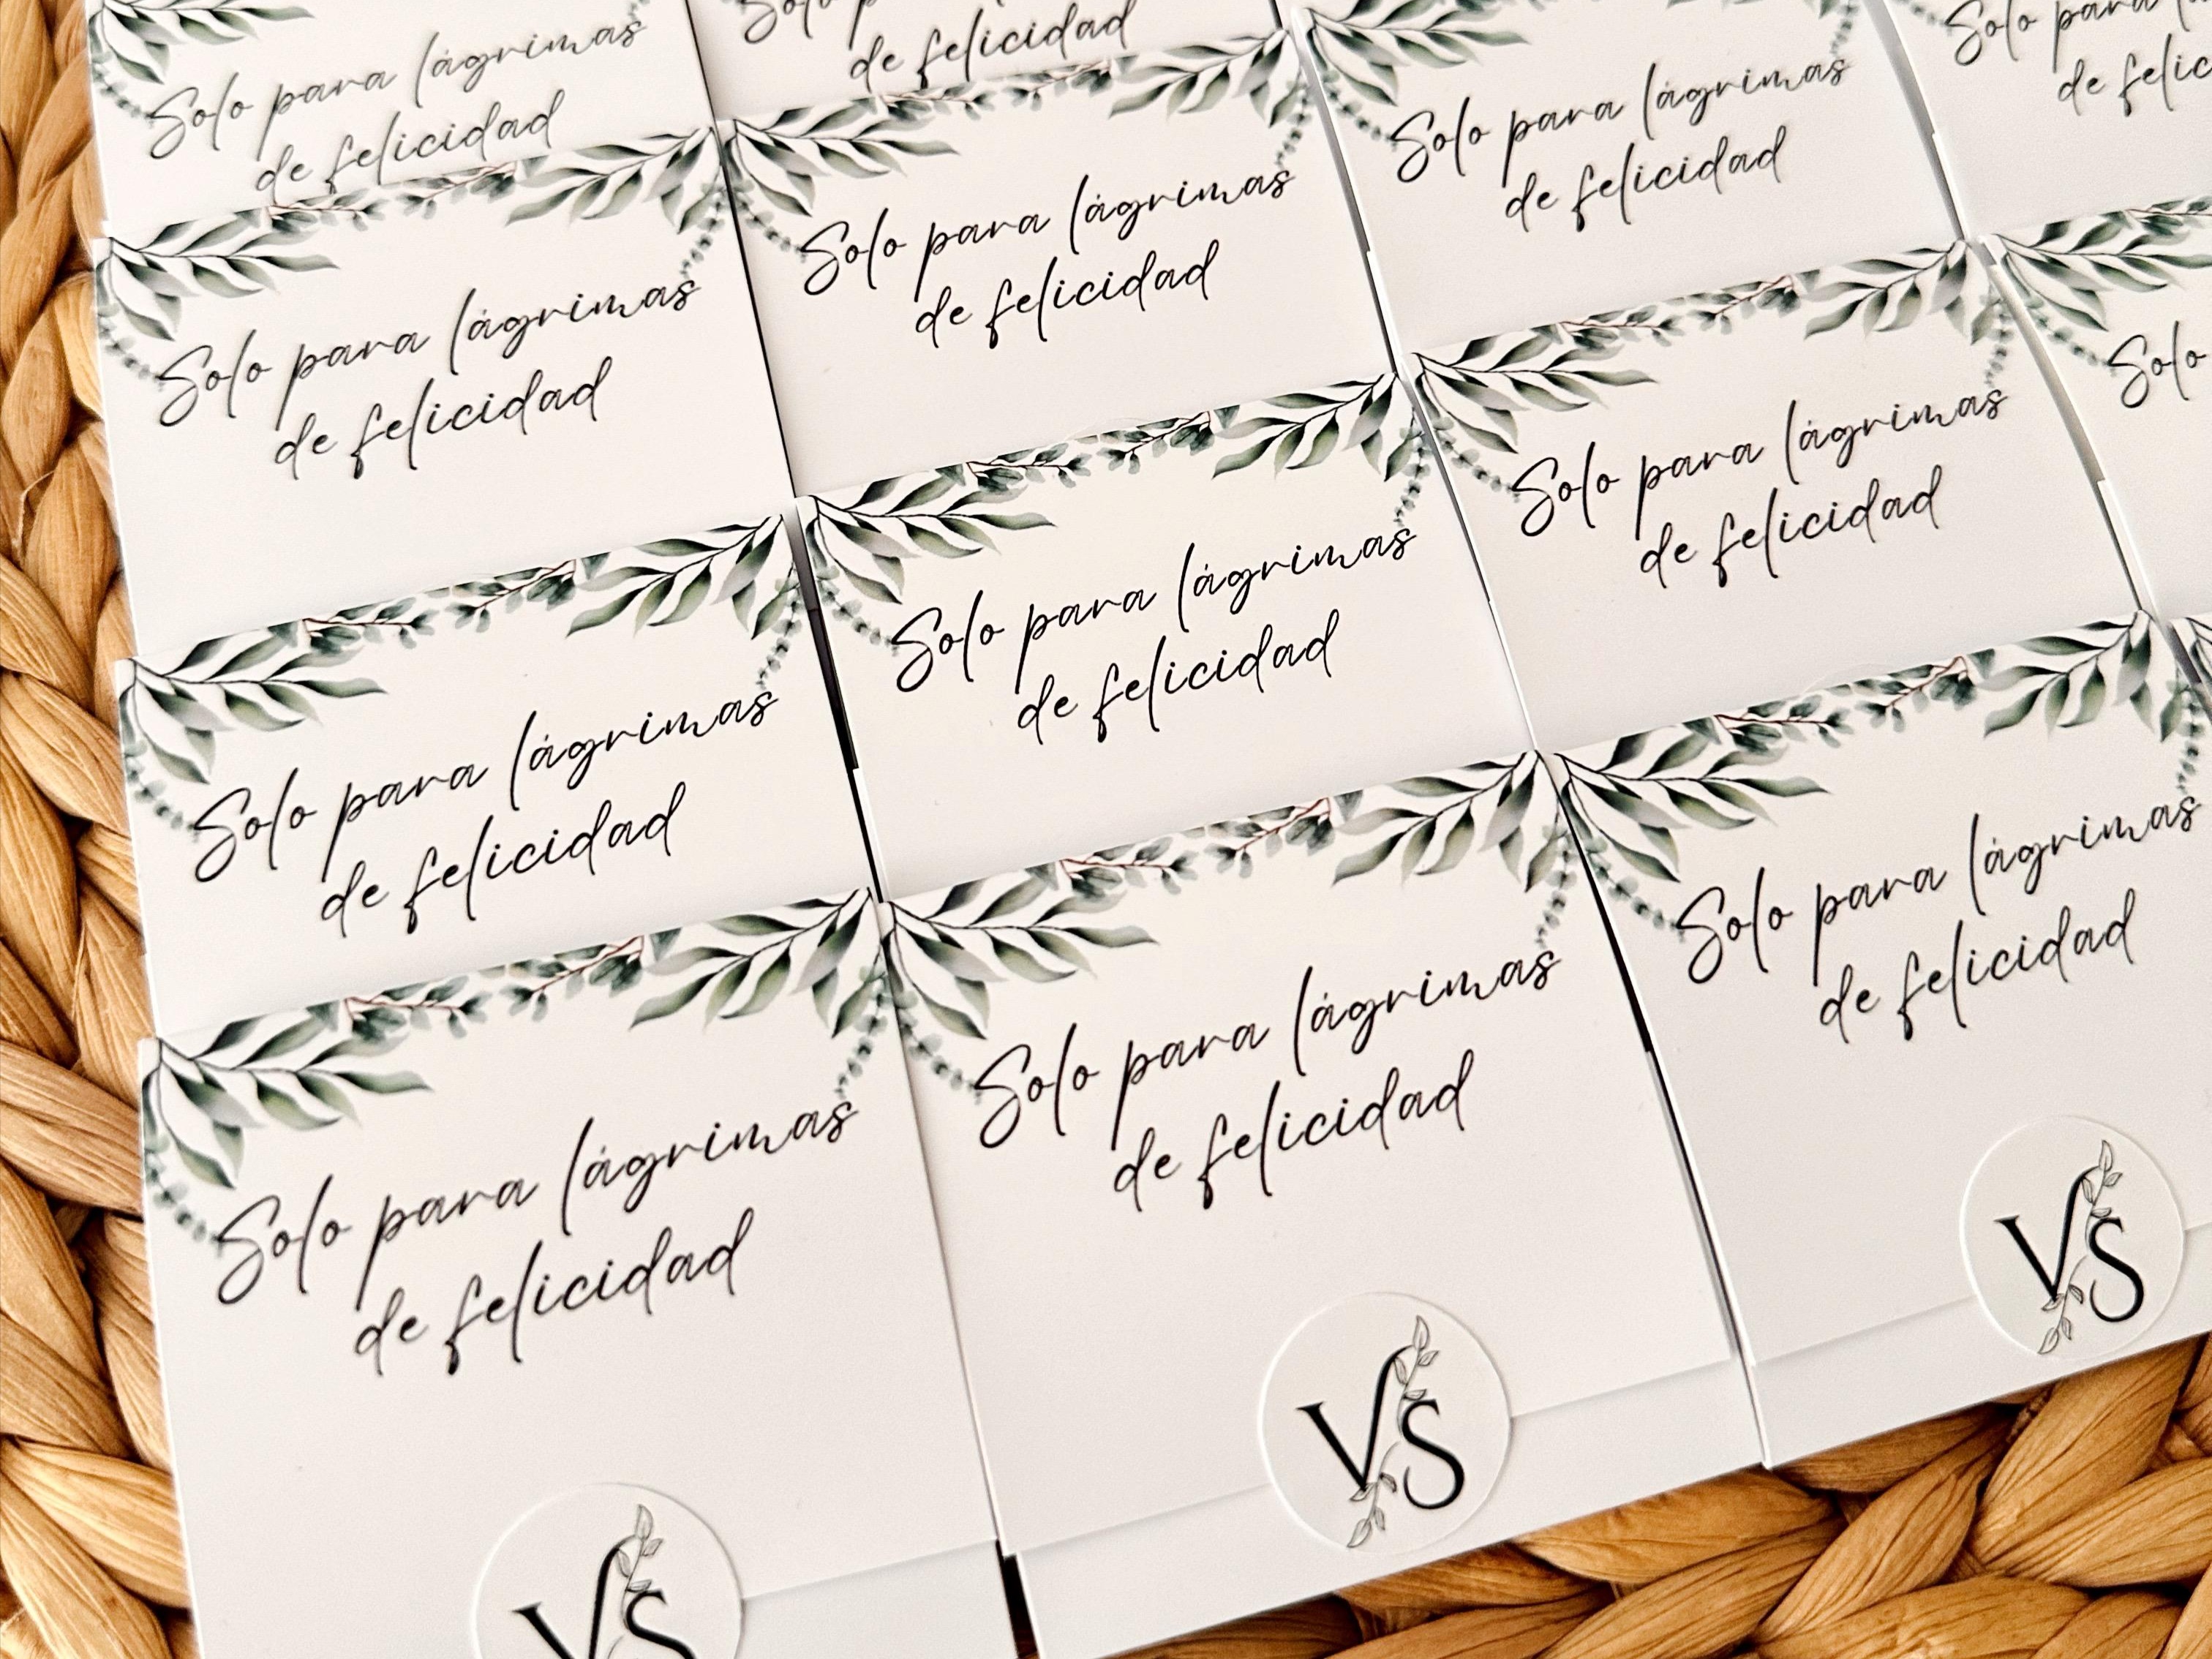 Solo para lágrimas
de felicidad
Solo
de felicidad
Solo para lágrimas
de felicidad
Solo para
de felic
Solo para lágrimas
de felicidad
Solo para lágrimas
de felicidad
Solo para lágrimas
de felicidad
Solo
Solo para lágrimas
de felicidad
Solo para lágrimas
de felicidad
Solo para lágrimas
de felicidad
Solo para lágrimas
de felicidad
Solo para lágrimas
de felicidad
VS
VS
VS